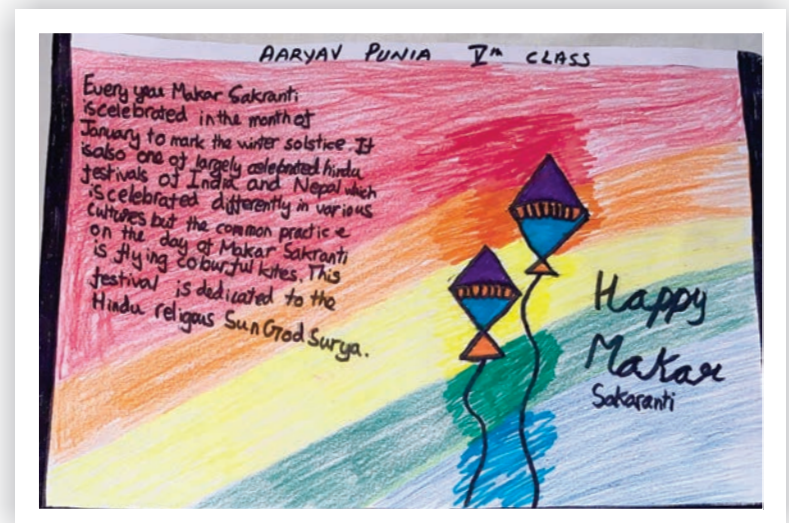 AARYAV PUNIA Vth CLASS
Every year Makar Sakranti
is celebrated in the month of
January to mark the winter solstice. It
is also one of largely celebrated hindu
festivals of India and Nepal which
is celebrated differently in various
cultures but the common practice
on the day of Makar Sakranti
is flying colourful kites. This
festival is dedicated to the
Hindu religous Sun God Surya.
Happy
Makar
Sakaranti